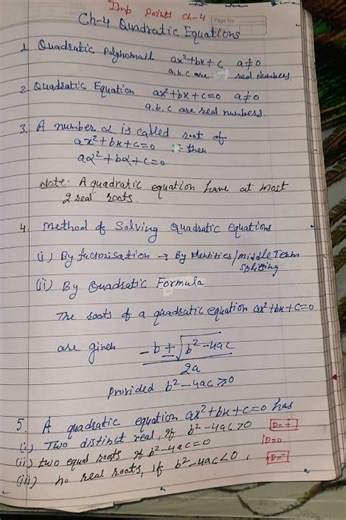 Imp Points Ch-4
Ch-4 Quadratic Equations
1. Quadratic Polynomial ax²+bx+c a≠0
a.b.c are real numbers.
2. Quadratic Equation ax²+bx+c=0 a≠0
a.b.c are real numbers.
3. A number α is called root of
ax²+bx+c=0 if then
aα²+bα+c=0
Note: A quadratic equation have at most
2 real roots.
4. Method of Solving Quadratic equations
(i) By factorisation → By Identities/middle Term
splitting
(ii) By Quadratic Formula
The roots of a quadratic equation ax²+bx+c=0
are given -b±√b²-4ac
2a
Provided b²-4ac≥0
5. A quadratic equation ax²+bx+c=0 has
(i) Two distinct real, if b²-4ac>0 D=+
(ii) two equal roots if b²-4ac=0 D=0
(iii) no real roots, if b²-4ac<0, D=-